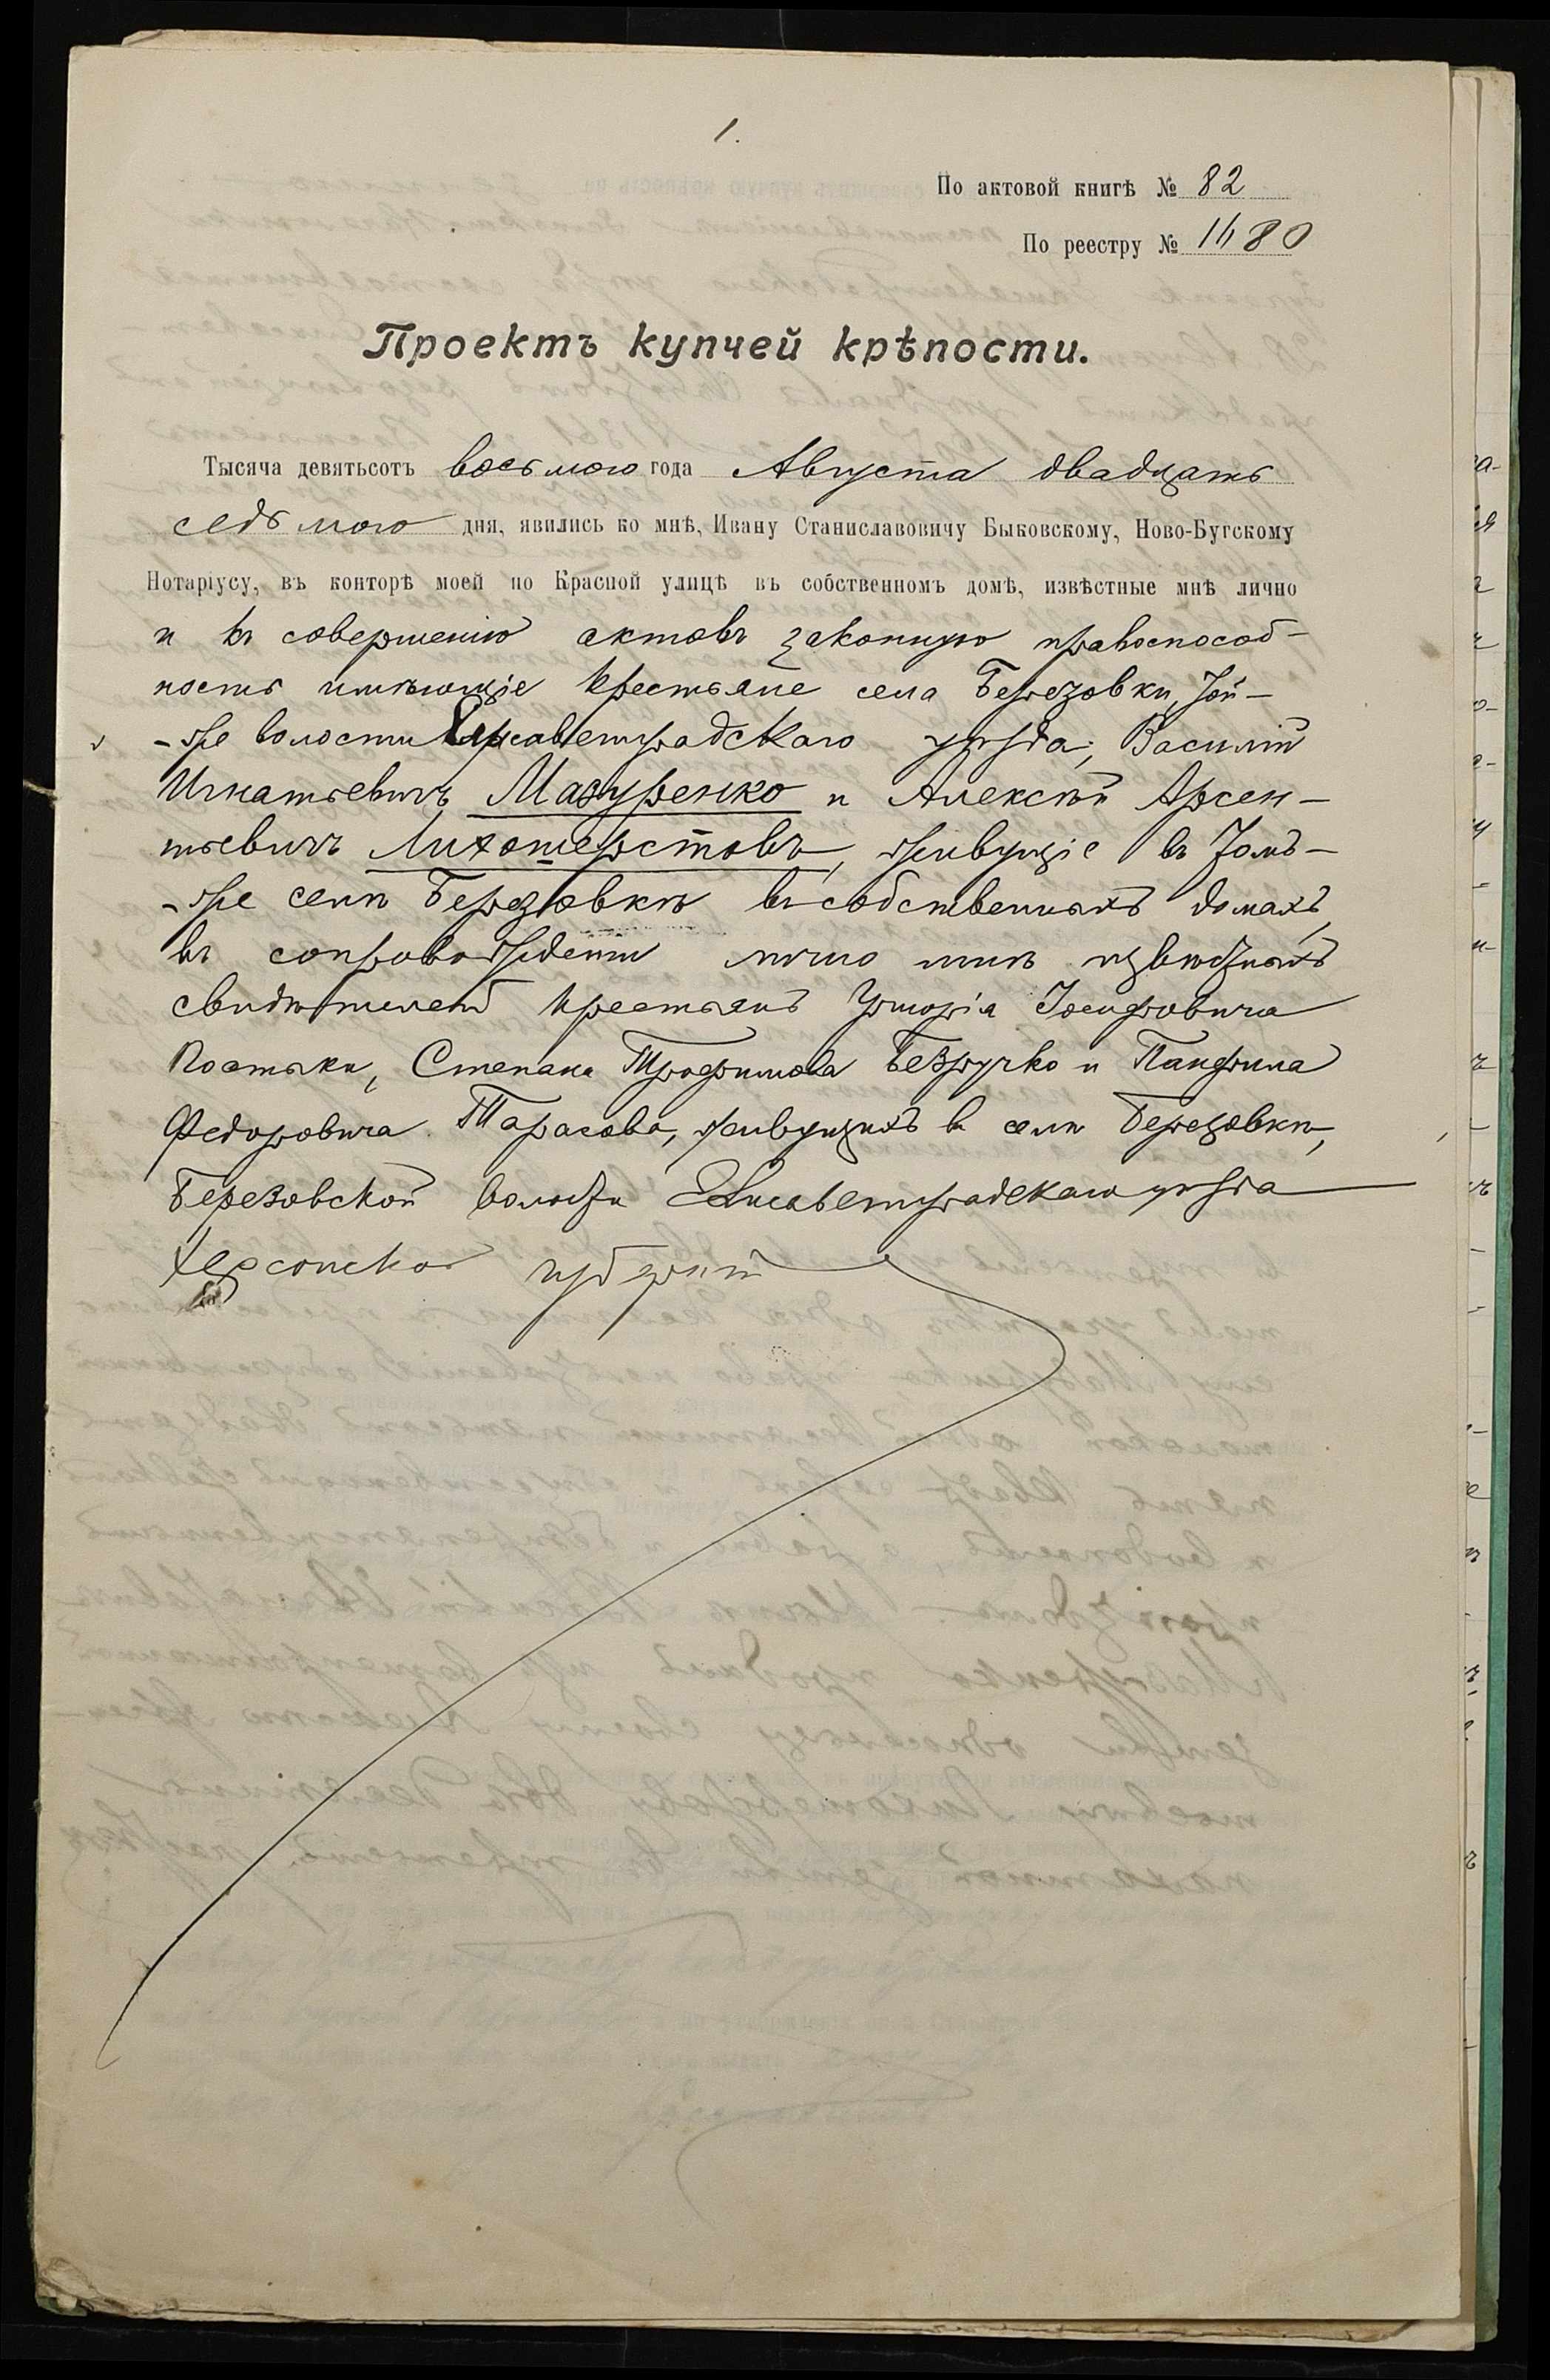 1.
По актовой книгѣ № 82
По реестру № 1680
Проектъ купчей крѣпости.
Тысяча девятьсотъ восьмого года Августа двадцать
седьмого дня, явились ко мнѣ, Ивану Станиславовичу Быковскому, Ново-Бугскому
Нотаріусу, въ конторѣ моей по Красной улицѣ въ собственномъ домѣ, извѣстные мнѣ лично
и къ совершенію актовъ законную правоспособ-
ность имѣющіе крестьяне села Березовки, той-
-же волости Елисаветградскаго уѣзда, Василій
Игнатьевичъ Мазуренко и Алексѣй Арсен-
тьевичъ Лихошерстовъ, живущіе въ томъ-
-же селѣ Березовкѣ въ собственныхъ домахъ,
въ сопровожденіи лично мнѣ извѣстныхъ
свидѣтелей крестьянъ Григорія Іосифовича
Костяки, Степана Трофимова Безручко и Панфила
Федоровича Тарасова, живущихъ въ селѣ Березовкѣ,
Березовской волости Елисаветградскаго уѣзда
Херсонской губерніи